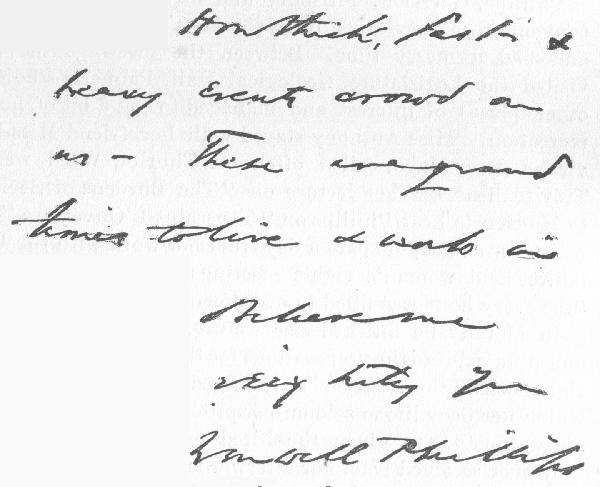 How thick, fast &
heavy events crowd on
us These are grand
times to live & work in
Believe me
very truly Yrs
Wendell Phillips